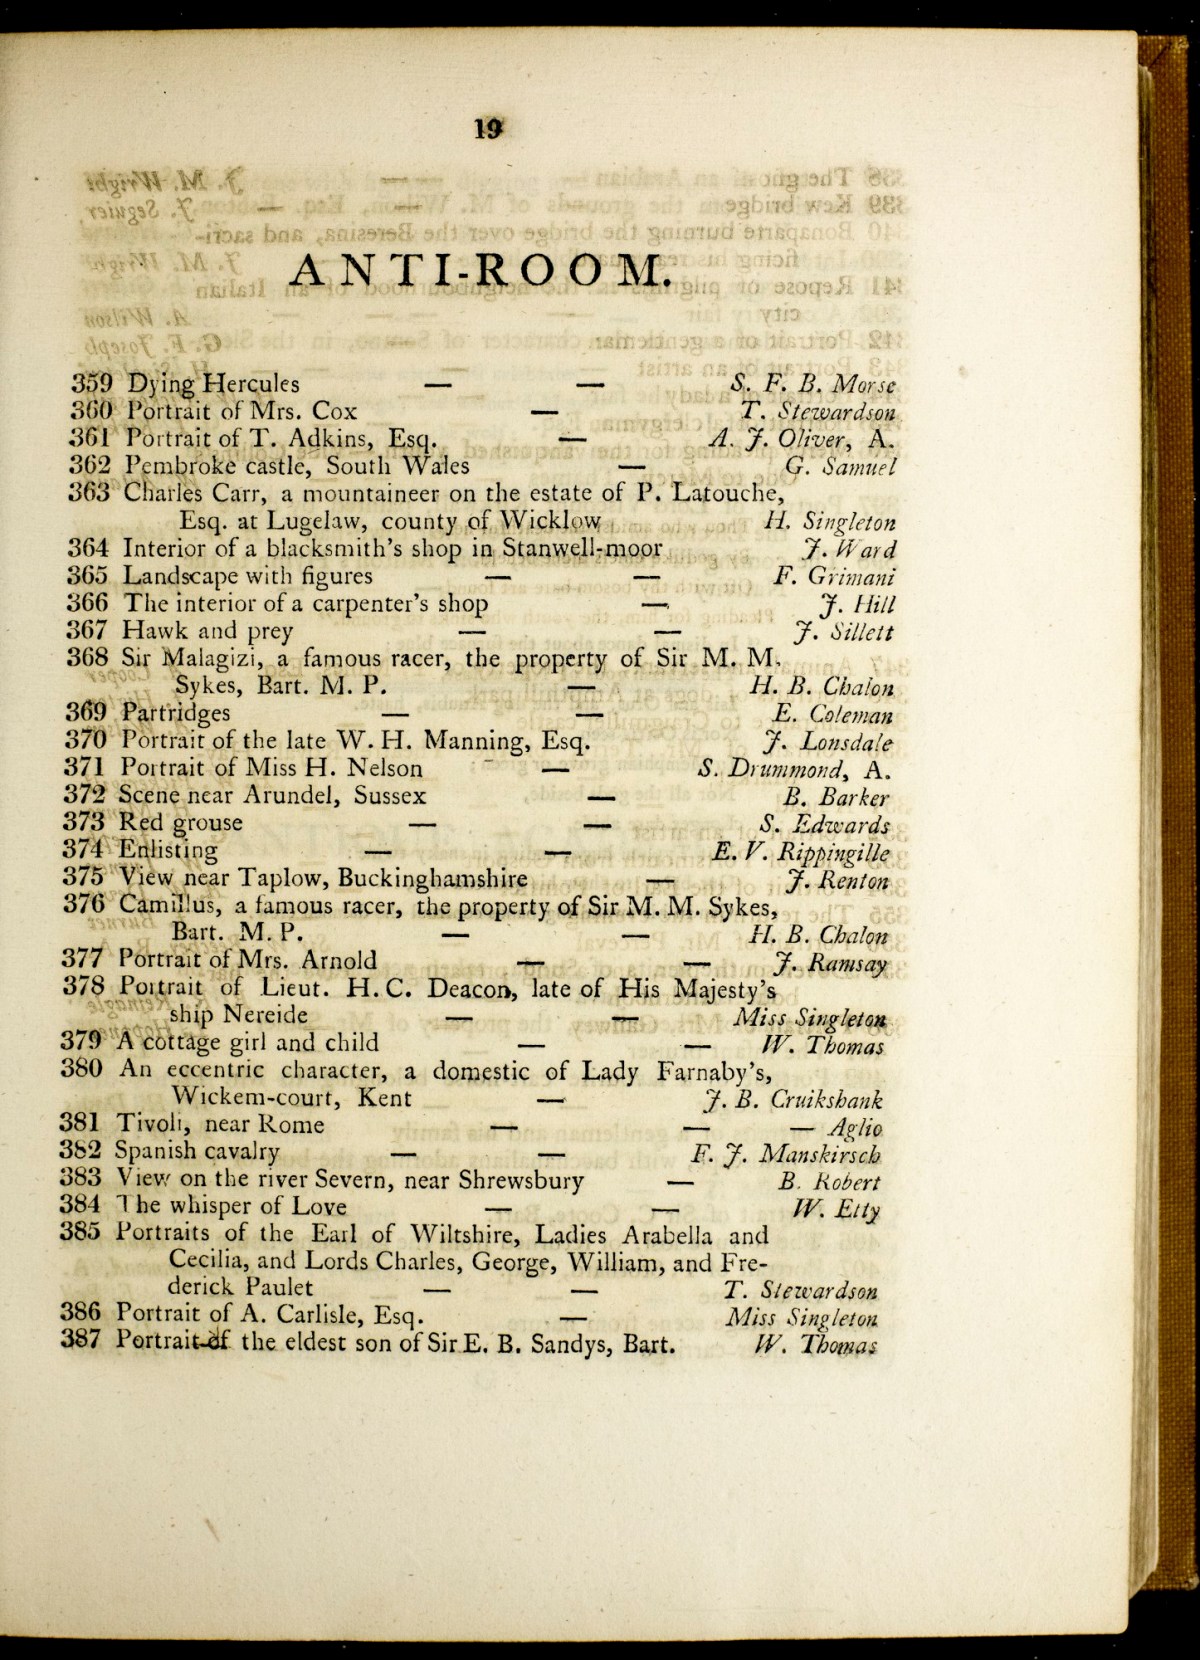 19
ANTI-ROOM.
359 Dying Hercules — — S. F. B. Morse
360 Portrait of Mrs. Cox — T. Stewardson
361 Portrait of T. Adkins, Esq. — A. J. Oliver, A.
362 Pembroke castle, South Wales — G. Samuel
363 Charles Carr, a mountaineer on the estate of P. Latouche,
Esq. at Lugelaw, county of Wicklow H. Singleton
364 Interior of a blacksmith's shop in Stanwell-moor J. Ward
365 Landscape with figures — — F. Grimani
366 The interior of a carpenter's shop — J. Hill
367 Hawk and prey — — J. Sillett
368 Sir Malagizi, a famous racer, the property of Sir M. M.
Sykes, Bart. M. P. — H. B. Chalon
369 Partridges — — E. Coleman
370 Portrait of the late W. H. Manning, Esq. J. Lonsdale
371 Portrait of Miss H. Nelson — S. Drummond, A.
372 Scene near Arundel, Sussex — B. Barker
373 Red grouse — — S. Edwards
374 Enlisting — — E. V. Rippingille
375 View near Taplow, Buckinghamshire — J. Renton
376 Camillus, a famous racer, the property of Sir M. M. Sykes,
Bart. M. P. — — H. B. Chalon
377 Portrait of Mrs. Arnold — — J. Ramsay
378 Portrait of Lieut. H. C. Deacon, late of His Majesty's
ship Nereide — — Miss Singleton
379 A cottage girl and child — — W. Thomas
380 An eccentric character, a domestic of Lady Farnaby's,
Wickem-court, Kent — J. B. Cruikshank
381 Tivoli, near Rome — — — Aglio
382 Spanish cavalry — — F. J. Manskirsch
383 View on the river Severn, near Shrewsbury — B. Robert
384 The whisper of Love — — W. Etty
385 Portraits of the Earl of Wiltshire, Ladies Arabella and
Cecilia, and Lords Charles, George, William, and Fre-
derick Paulet — — T. Stewardson
386 Portrait of A. Carlisle, Esq. — Miss Singleton
387 Portrait of the eldest son of Sir E. B. Sandys, Bart. W. Thomas